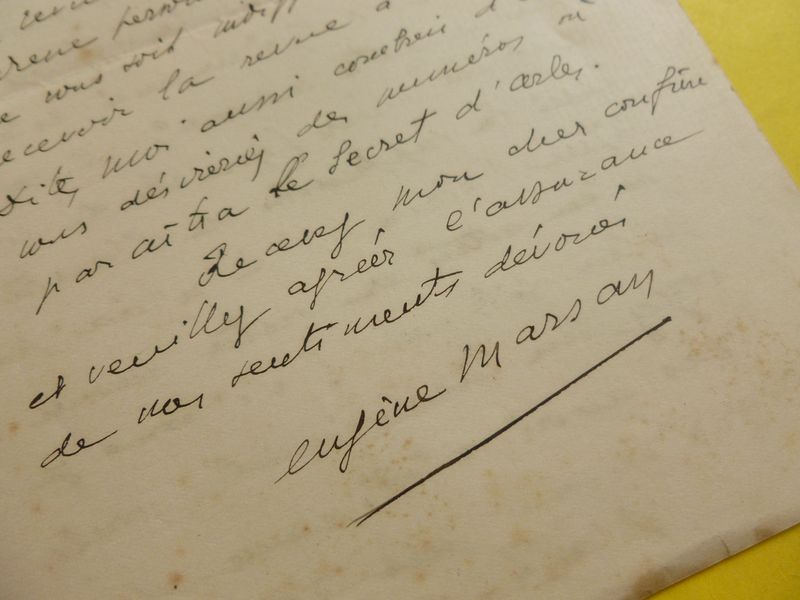 vous soit
recevoir la revue à
Dites moi aussi combien d
vous désireriez des numéros où
paraîtra le Secret d'arles.
Recevez mon cher confrère
et veuillez agréer l'assurance
de nos sentiments dévoués
Eugène Marsan